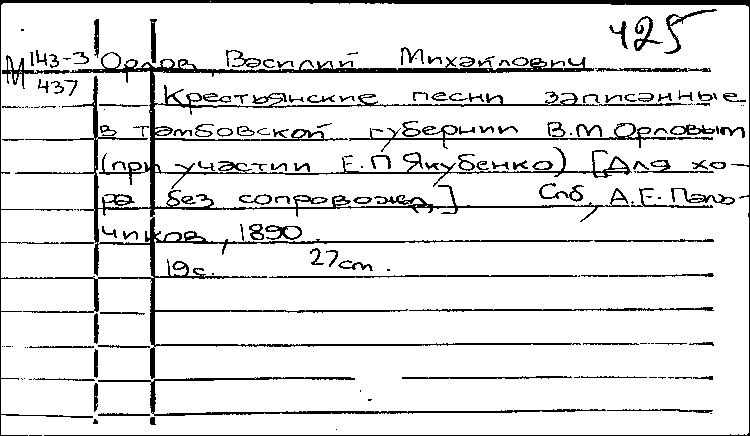 425
М 143-3 Орлов, Василий Михайлович
437
Крестьянские песни записанные
в тамбовской губернии В.М Орловым
(при участии Е.П Якубенко) [Для хо-
ра без сопровожд.] Спб, А.Е. Паль-
чиков, 1890.
19с. 27см.